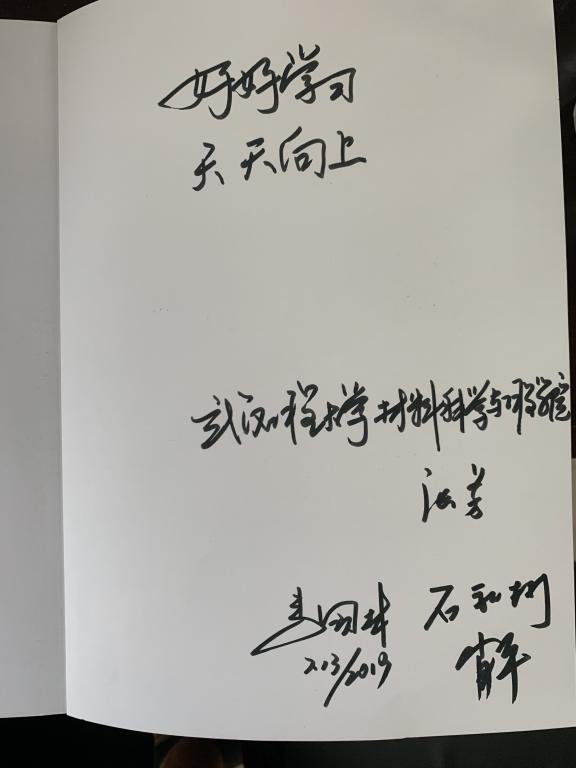 好好学习
天天向上
武汉工程大学材料科学与工程学院
江芳
石和彬
2.13/2019